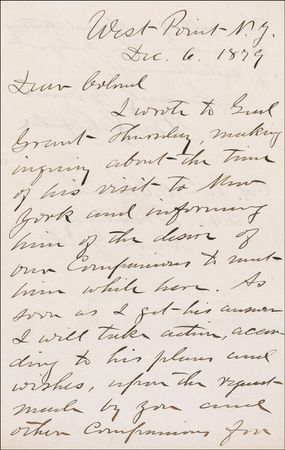 West Point N.Y.
Dec. 6. 1879
Dear Colonel
I wrote to Genl
Grant Thursday, making
inquiry about the time
of his visit to New
York and informing
him of the desire of
our Companions to meet
him while here. As
soon as I get his answer
I will take action, accor-
ding to his plans and
wishes, upon the request
made by you and
other Companions for